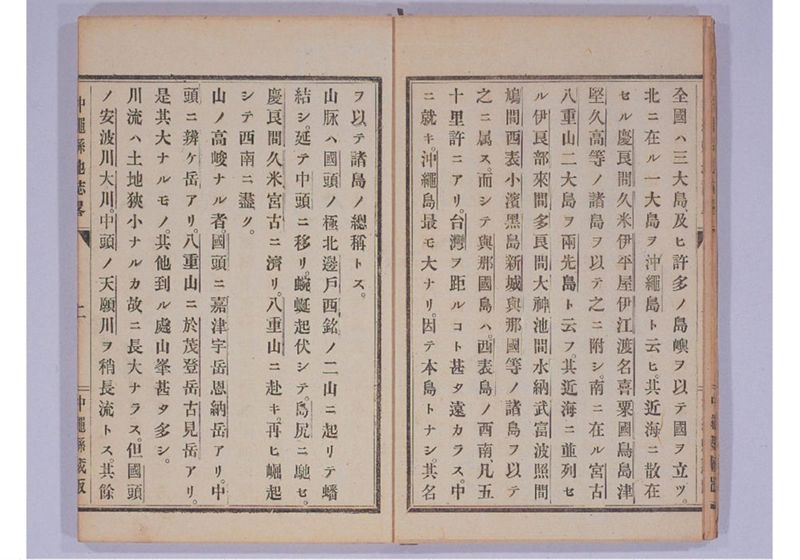 全國ハ三大島及ヒ許多ノ島嶼ヲ以テ國ヲ立ツ。
北ニ在ル一大島ヲ沖繩島ト云ヒ。其近海ニ散在
セル慶良間久米伊平屋伊江渡名喜粟國鳥島津
堅久高等ノ諸島ヲ以テ之ニ附シ。南ニ在ル宮古
八重山二大島ヲ兩先島ト云フ。其近海ニ並列セ
ル伊良部來間多良間大神池間水納武富波照間
鳩間西表小濱黑島新城與那國等ノ諸島ヲ以テ
之ニ属ス。而シテ與那國島ハ西表島ノ西南凡五
十里許ニアリ。台灣ヲ距ルコト甚タ遠カラス。中
ニ就キ。沖繩島最モ大ナリ。因テ本島トナシ。其名
ヲ以テ諸島ノ總稱トス。
山脉ハ國頭ノ極北邊戸西銘ノ二山ニ起リテ蟠
結シ。延テ中頭ニ移リ。蜿蜒起伏シテ。島尻ニ馳セ。
慶良間久米宮古ニ濟リ。八重山ニ赴キ。再ヒ崛起
シテ西南ニ盡ク。
山ノ高峻ナル者。國頭ニ嘉津宇岳恩納岳アリ。中
頭ニ辨ケ岳アリ。八重山ニ於茂登岳古見岳アリ。
是其大ナルモノ。其他到ル處山峯甚タ多シ。
川流ハ土地狹小ナルカ故ニ長大ナラス。但國頭
ノ安波川大川。中頭ノ天願川ヲ稍長流トス。其餘
沖繩縣地誌畧
二
沖繩縣藏版